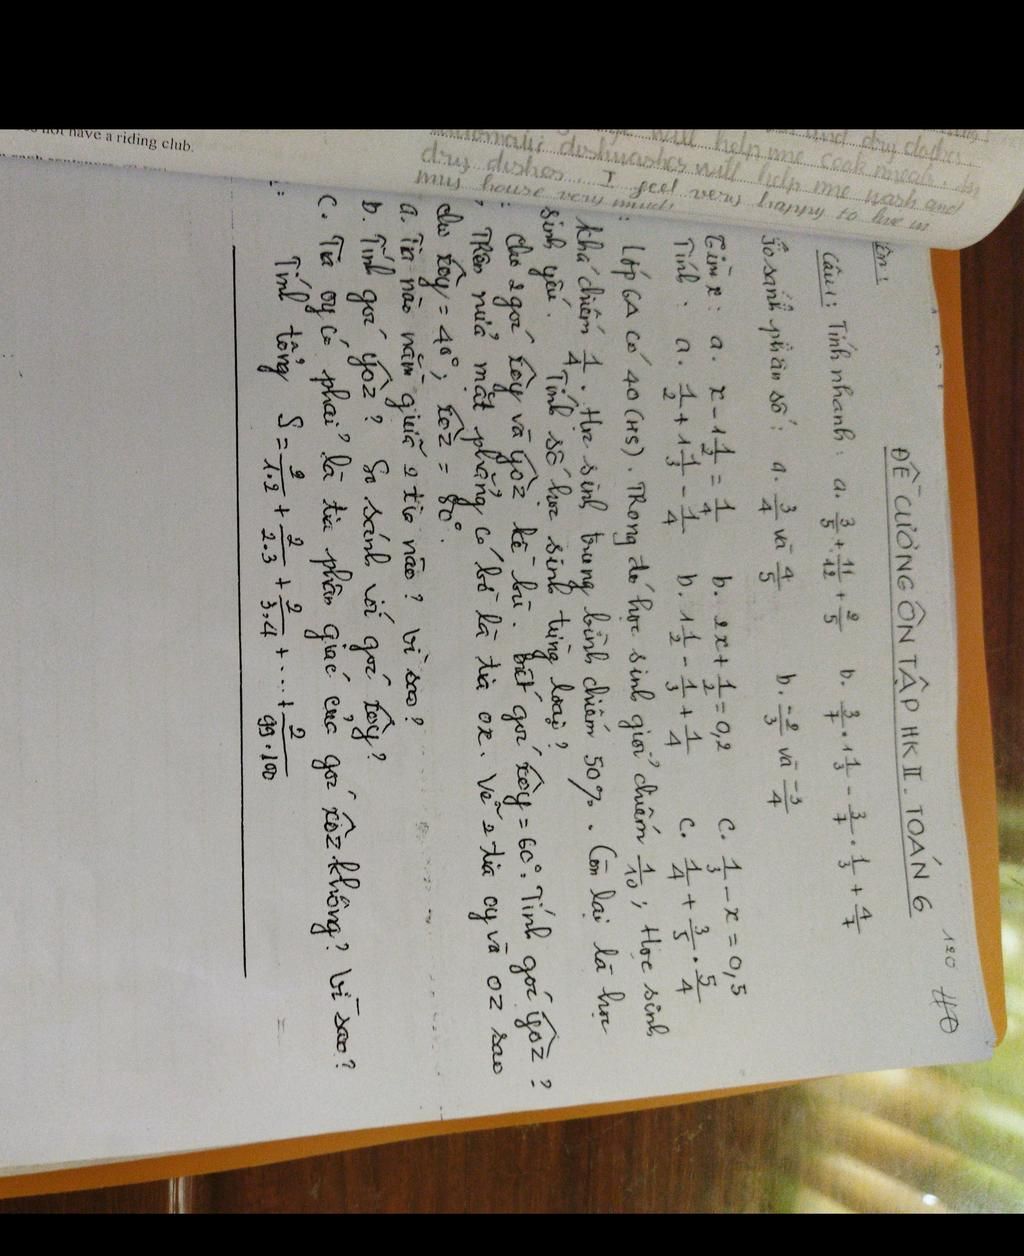 not have a riding club.
and dry clothes.
will help me cook meals.
automatic dishwashes will help me wash and
dry dishes. I feel very happy to live in
my house very much
120 HĐ
ĐỀ CƯỜNG ÔN TẬP HK II - TOÁN 6
Câu 1: Tính nhanh: a. 3/5 + 11/12 + 2/5 b. 3/7 . 1 1/3 - 3/7 . 1/3 + 4/7
So sánh phân số: a. 3/4 và 4/5 b. -2/3 và -3/4
Tìm x: a. x - 1 1/2 = 1/4 b. 2x + 1/2 = 0,2 c. 1/3 - x = 0,5
Tính: a. 1/2 + 1 1/3 - 1/4 b. 1 1/2 - 1/3 + 1/4 c. 1/4 + 3/5 . 5/4
: Lớp 6A có 40 (HS). Trong đó học sinh giỏi chiếm 1/10; Học sinh
khá chiếm 1/4. Học sinh trung bình chiếm 50%. Còn lại là học
sinh yếu. Tính số học sinh từng loại?
: Cho 2 góc xôy và yôz kề bù. biết góc xôy = 60°. Tính góc yôz?
Trên nửa mặt phẳng có bờ là tia ox. Vẽ 2 tia oy và oz sao
cho xôy = 40°; xôz = 80°.
a. Tia nào nằm giữa 2 tia nào? vì sao?
b. Tính góc yôz? So sánh với góc xôy?
c. Tia oy có phải là tia phân giác của góc xôz không? Vì sao?
Tính tổng S = 2/1.2 + 2/2.3 + 2/3.4 + ... + 2/99.100